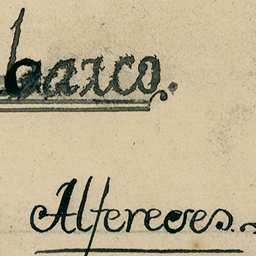 barco.
Alfereces.